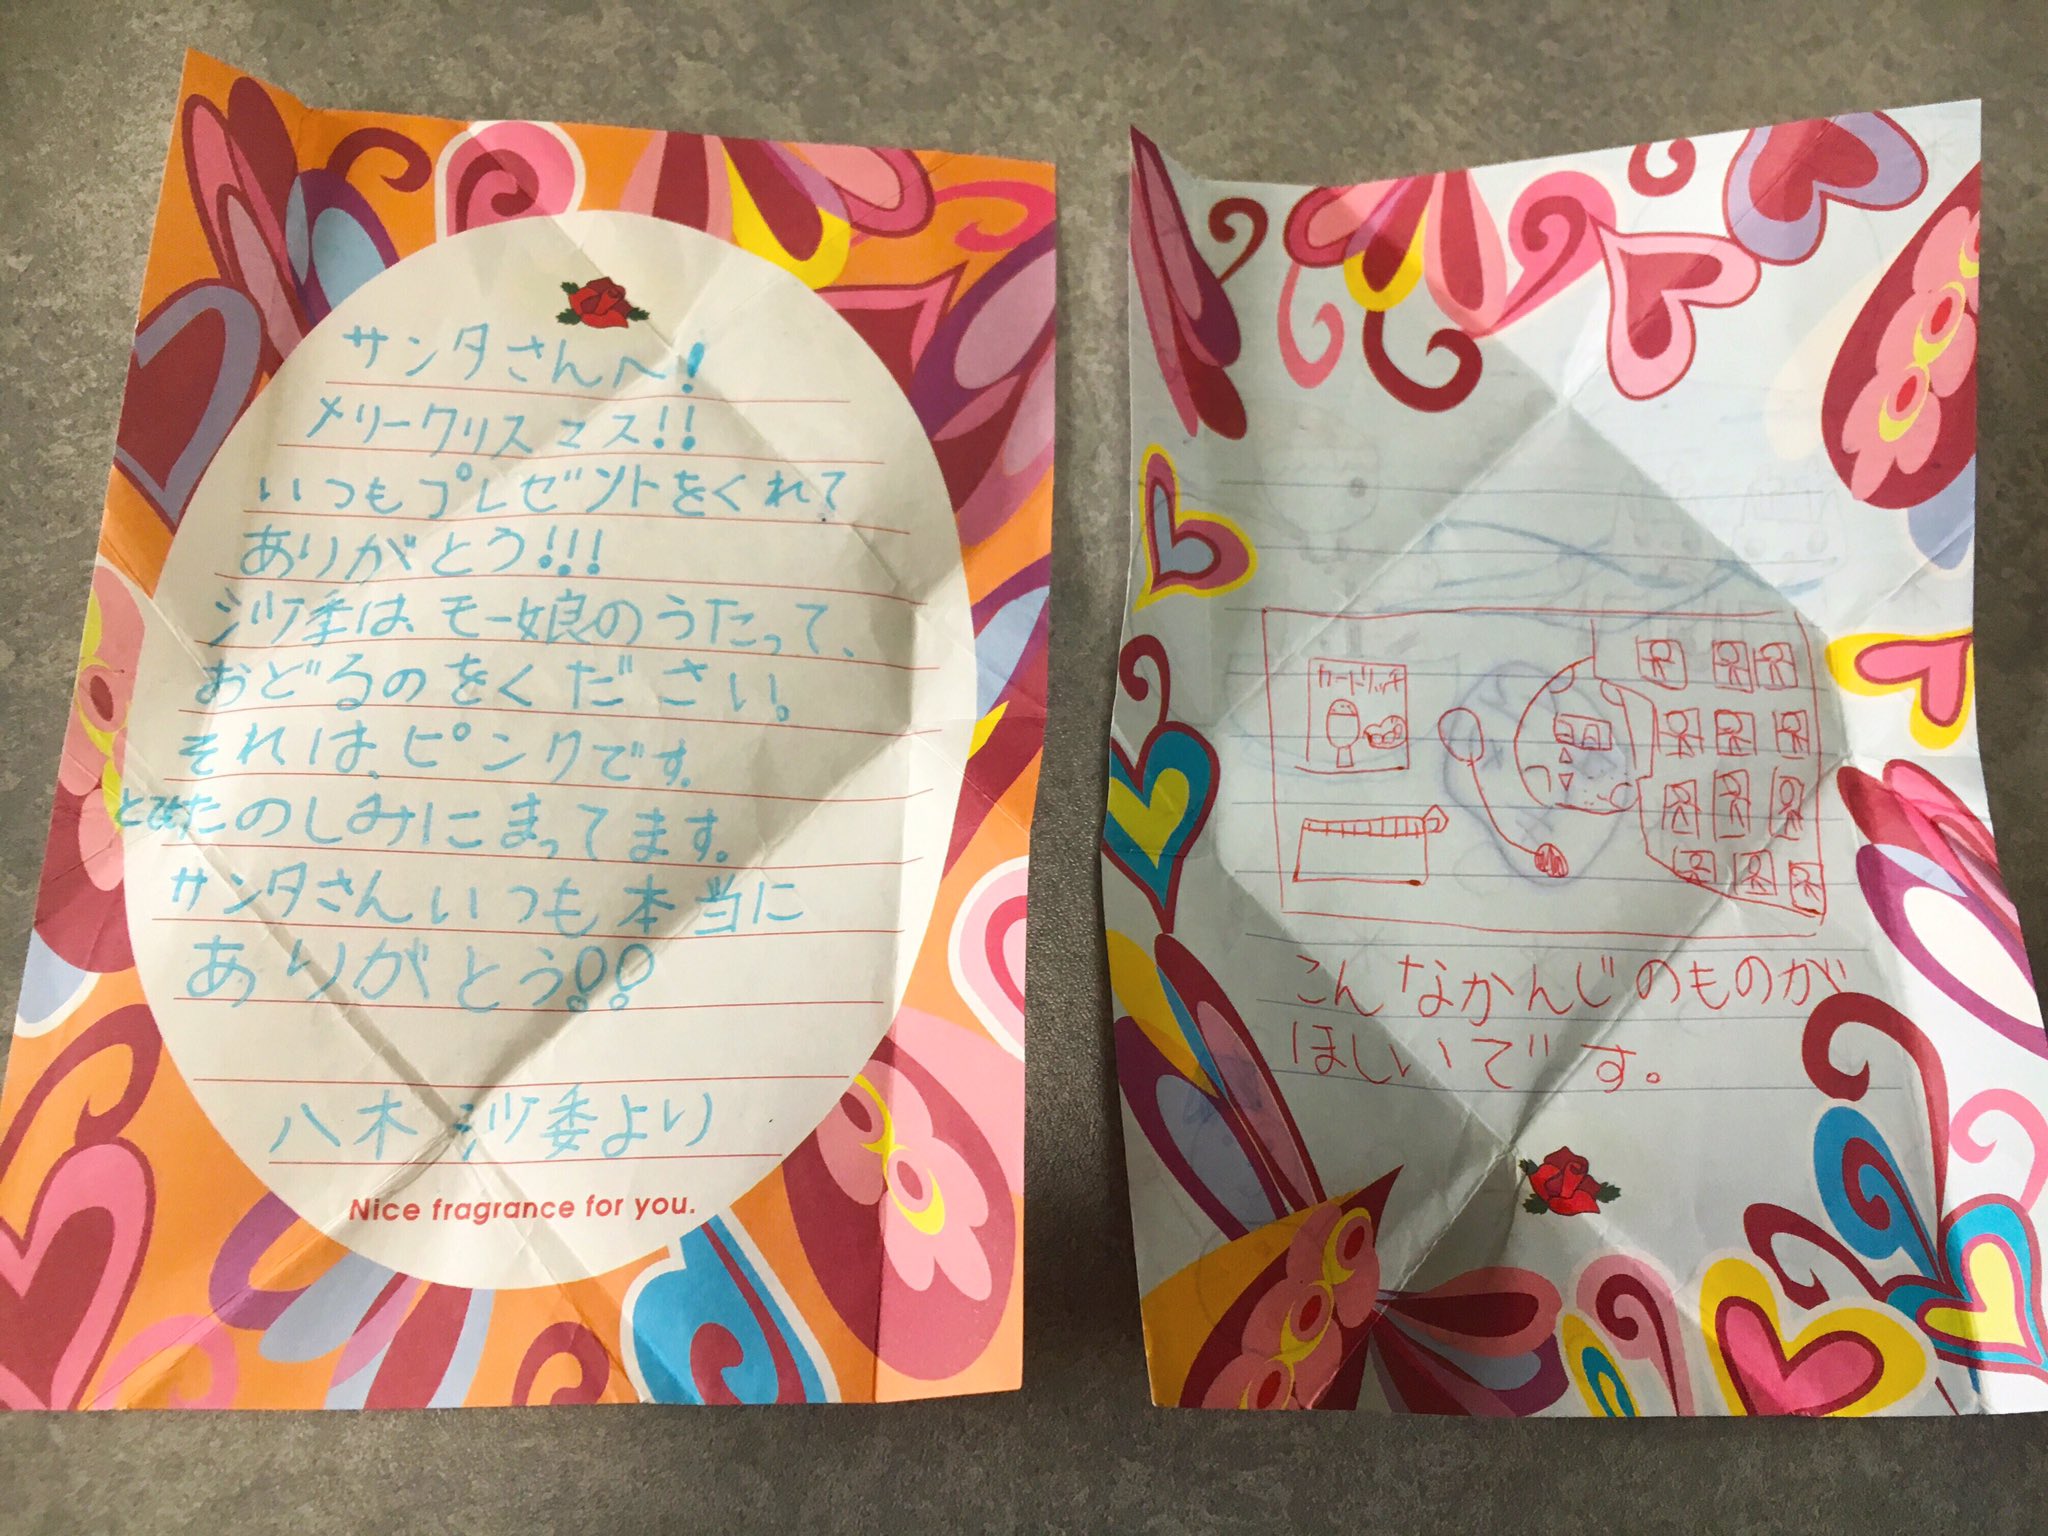 サンタさんへ!
メリークリスマス!!
いつもプレゼントをくれて
ありがとう!!!
沙季は、モー娘のうたって、
おどるのをください。
それは、ピンクです。
とてもたのしみにまってます。
サンタさんいつも本当に
ありがとう!!
八木 沙季より
Nice fragrance for you.
カートリッチ
こんなかんじのものが
ほしいです。